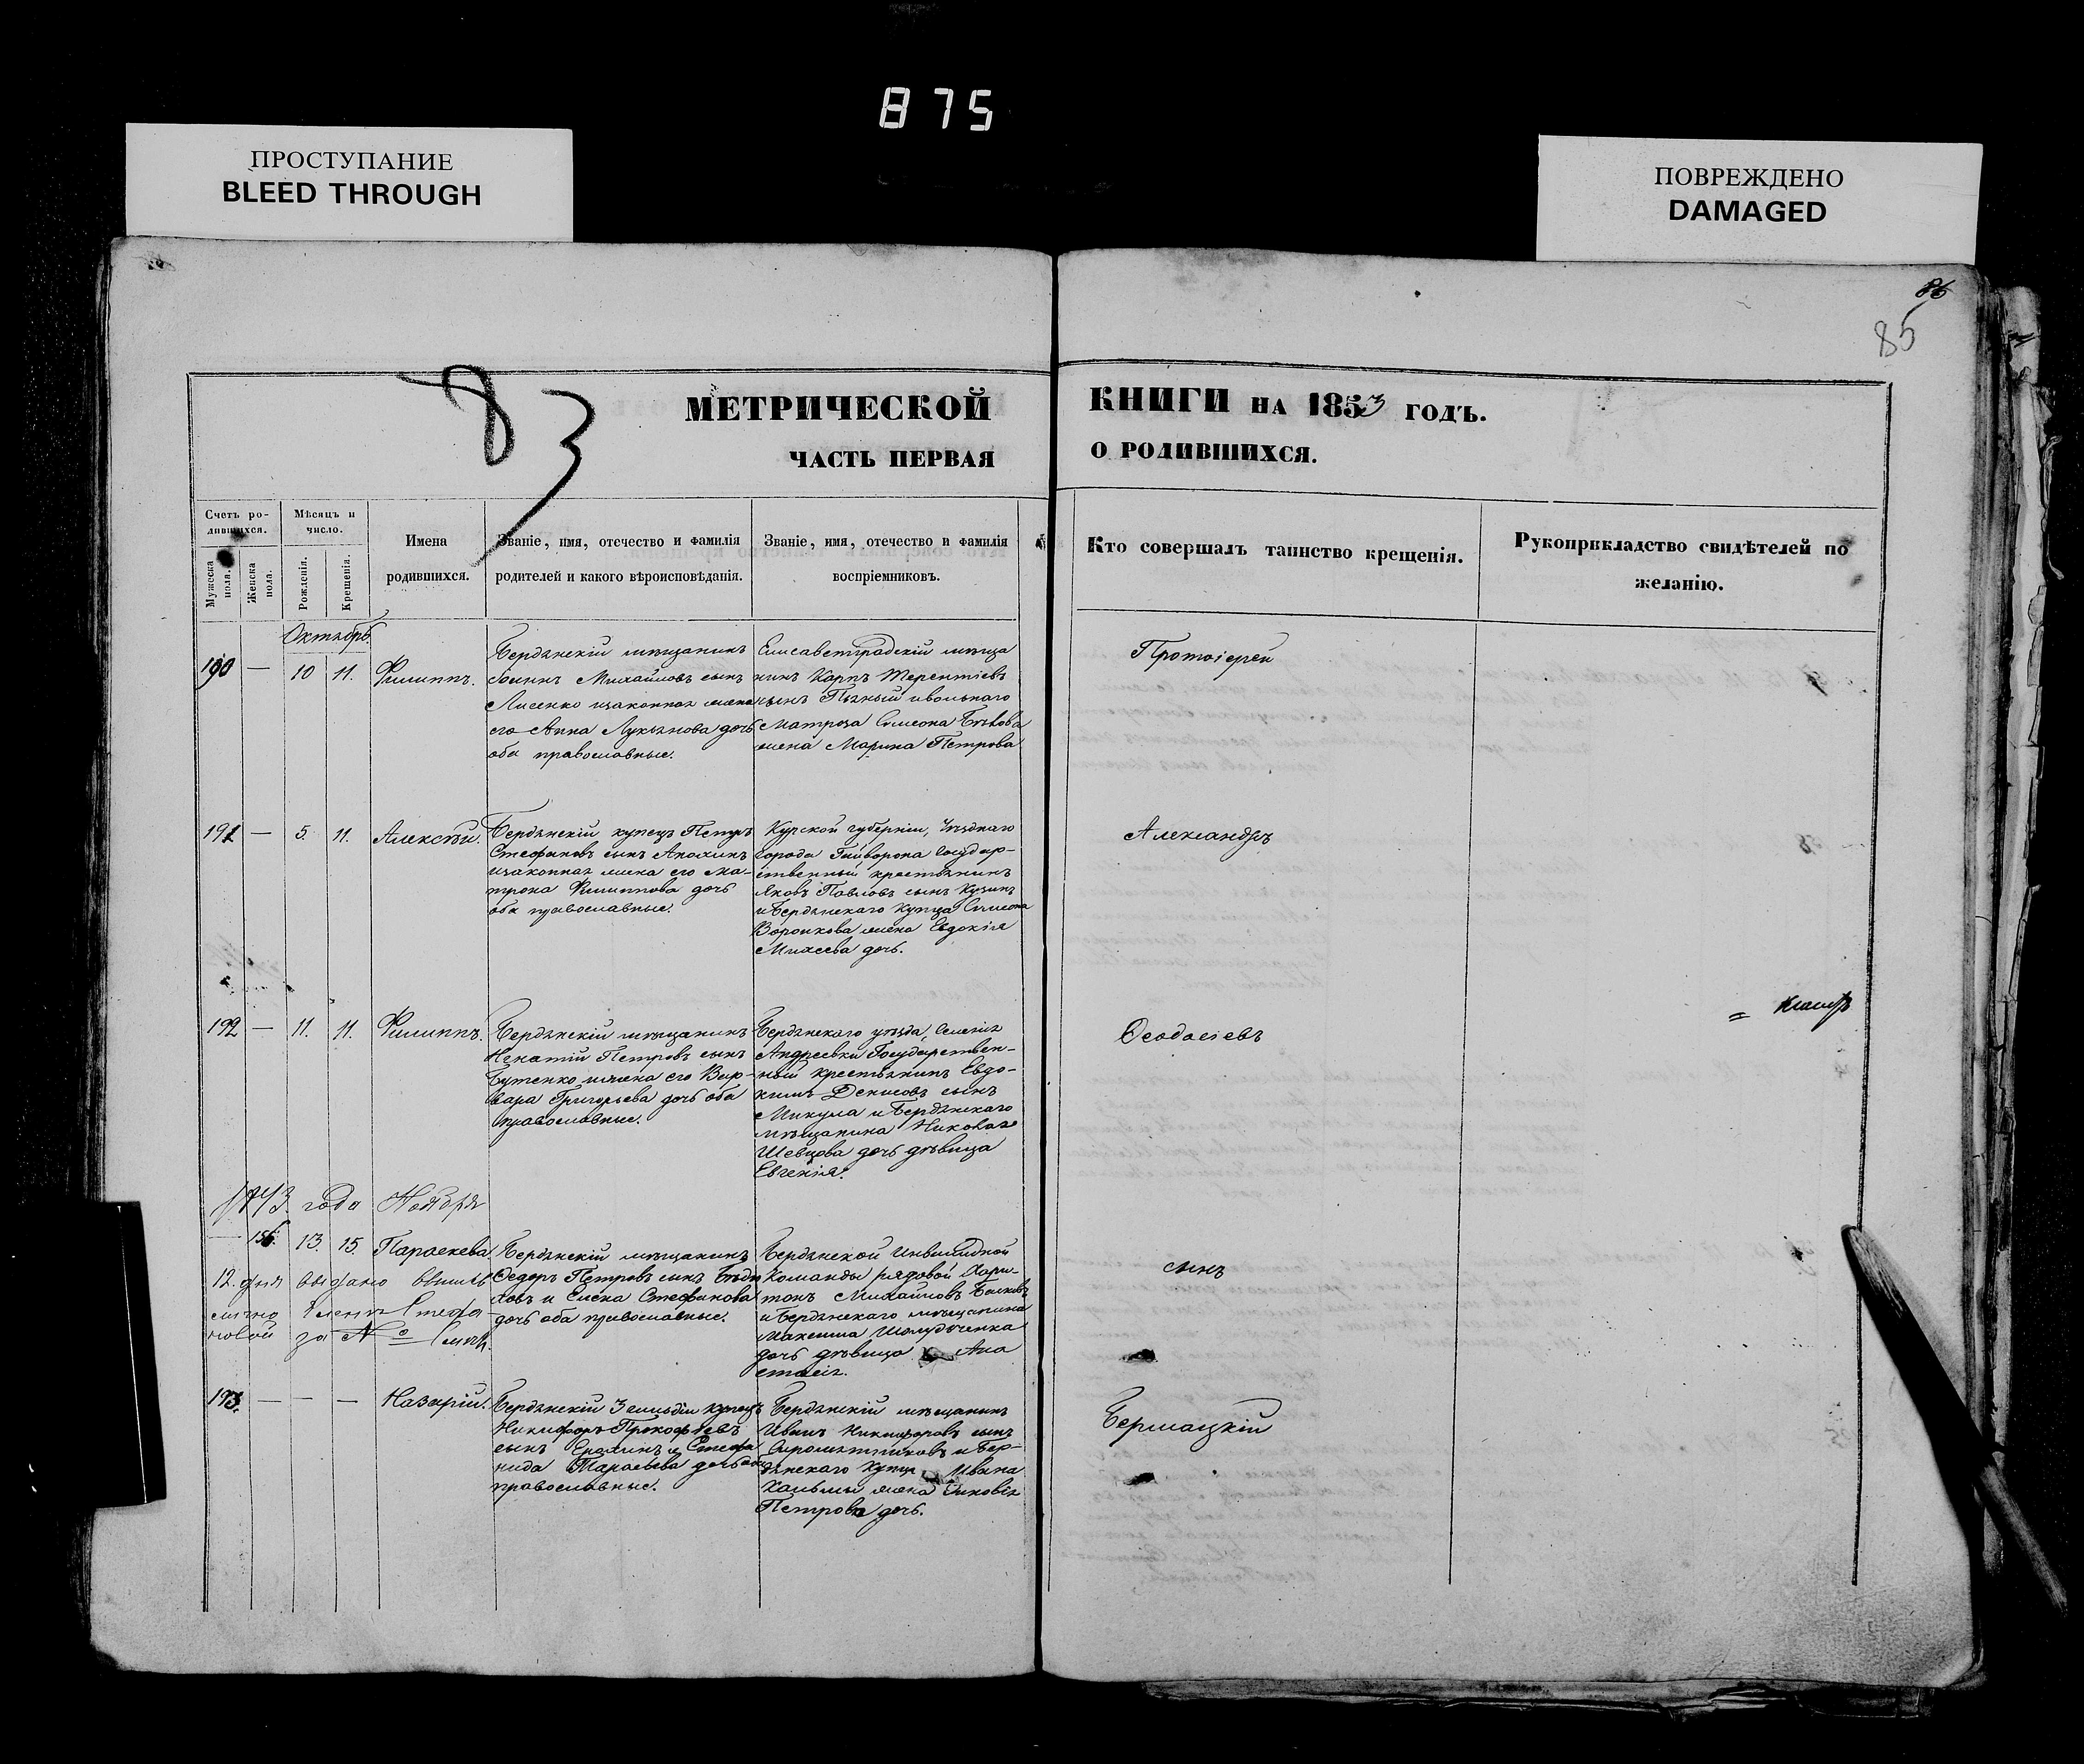 875
ПРОСТУПАНИЕ
BLEED THROUGH
ПОВРЕЖДЕНО
DAMAGED
86
85
83
МЕТРИЧЕСКОЙ
ЧАСТЬ ПЕРВАЯ
КНИГИ НА 1853 ГОДЪ.
О РОДИВШИХСЯ.
Счетъ ро-
дившихся.
Мужеска
пола.
Женска
пола.
Мѣсяцъ и
число.
Рожденія.
Крещенія.
Имена
родившихся.
Званіе, имя, отечество и фамилія
родителей и какого вѣроисповѣданія.
Званіе, имя, отечество и фамилія
воспріемниковъ.
Кто совершалъ таинство крещенія.
Рукоприкладство свидѣтелей по
желанію.
Октябрь
190 — 10 11. Филиппъ.
Бердянскій мѣщанинъ
Іоаннъ Михайловъ сынъ
Лисенко изаконная жена
его Анна Лукьянова дочь
оба православные.
Елисаветградскій мѣща
нинъ Карпъ Терентіевъ
сынъ ивольнаго
матроза Симеона
жена Марина Петрова
Протоіерей
191 — 5. 11. Алексѣй.
Бердянскій купецъ Петръ
Стефановъ сынъ Анохинъ
изаконная жена его Ма-
трона Филиппова дочь
оба православные.
Курской губерніи, Уѣзднаго
города Гайворона Государ-
ственный крестьянинъ
Яковъ Павловъ сынъ Кузинъ
и Бердянскаго Купца Симеона
Воронкова жена Евдокія
Михеева дочь.
Александръ
192 — 11. 11. Филиппъ.
Бердянскій мѣщанинъ
Игнатій Петровъ сынъ
Бутенко ижена его Вар-
вара Григорьева дочь оба
православные.
Бердянскаго уѣзда, Селенія
Андреевки Государствен-
ный крестьянинъ Евдо-
кимъ Денисовъ сынъ
Микула и Бердянскаго
мѣщанина Николая
Шевцова дочь дѣвица
Евгенія.
Ѳеодосіевъ
года Ноября
— 156. 13. 15. Параскева
12. дня выдано
лично Елена Стефа
новой за №
Бердянскій мѣщанинъ
Ѳедоръ Петровъ сынъ
ховъ и Елена Стефанова
дочь оба православные.
Бердянской Инвалидной
Команды рядовой Хари-
тонъ Михайловъ
и Бердянскаго мѣщанина
Максима
дочь дѣвица Ана
стасія.
сынъ
193. — — — Назарій.
Бердянскій купецъ
Никифоръ Прокофіевъ
сынъ Ерохинъ и Стефа
нида Тарасьева дочь оба
православные.
Бердянскій мѣщанинъ
Иванъ Никифоровъ сынъ
Сыромятниковъ и Бер-
дянскаго Купца Ивана
жена Зиновія
Петрова дочь.
Бершацкій